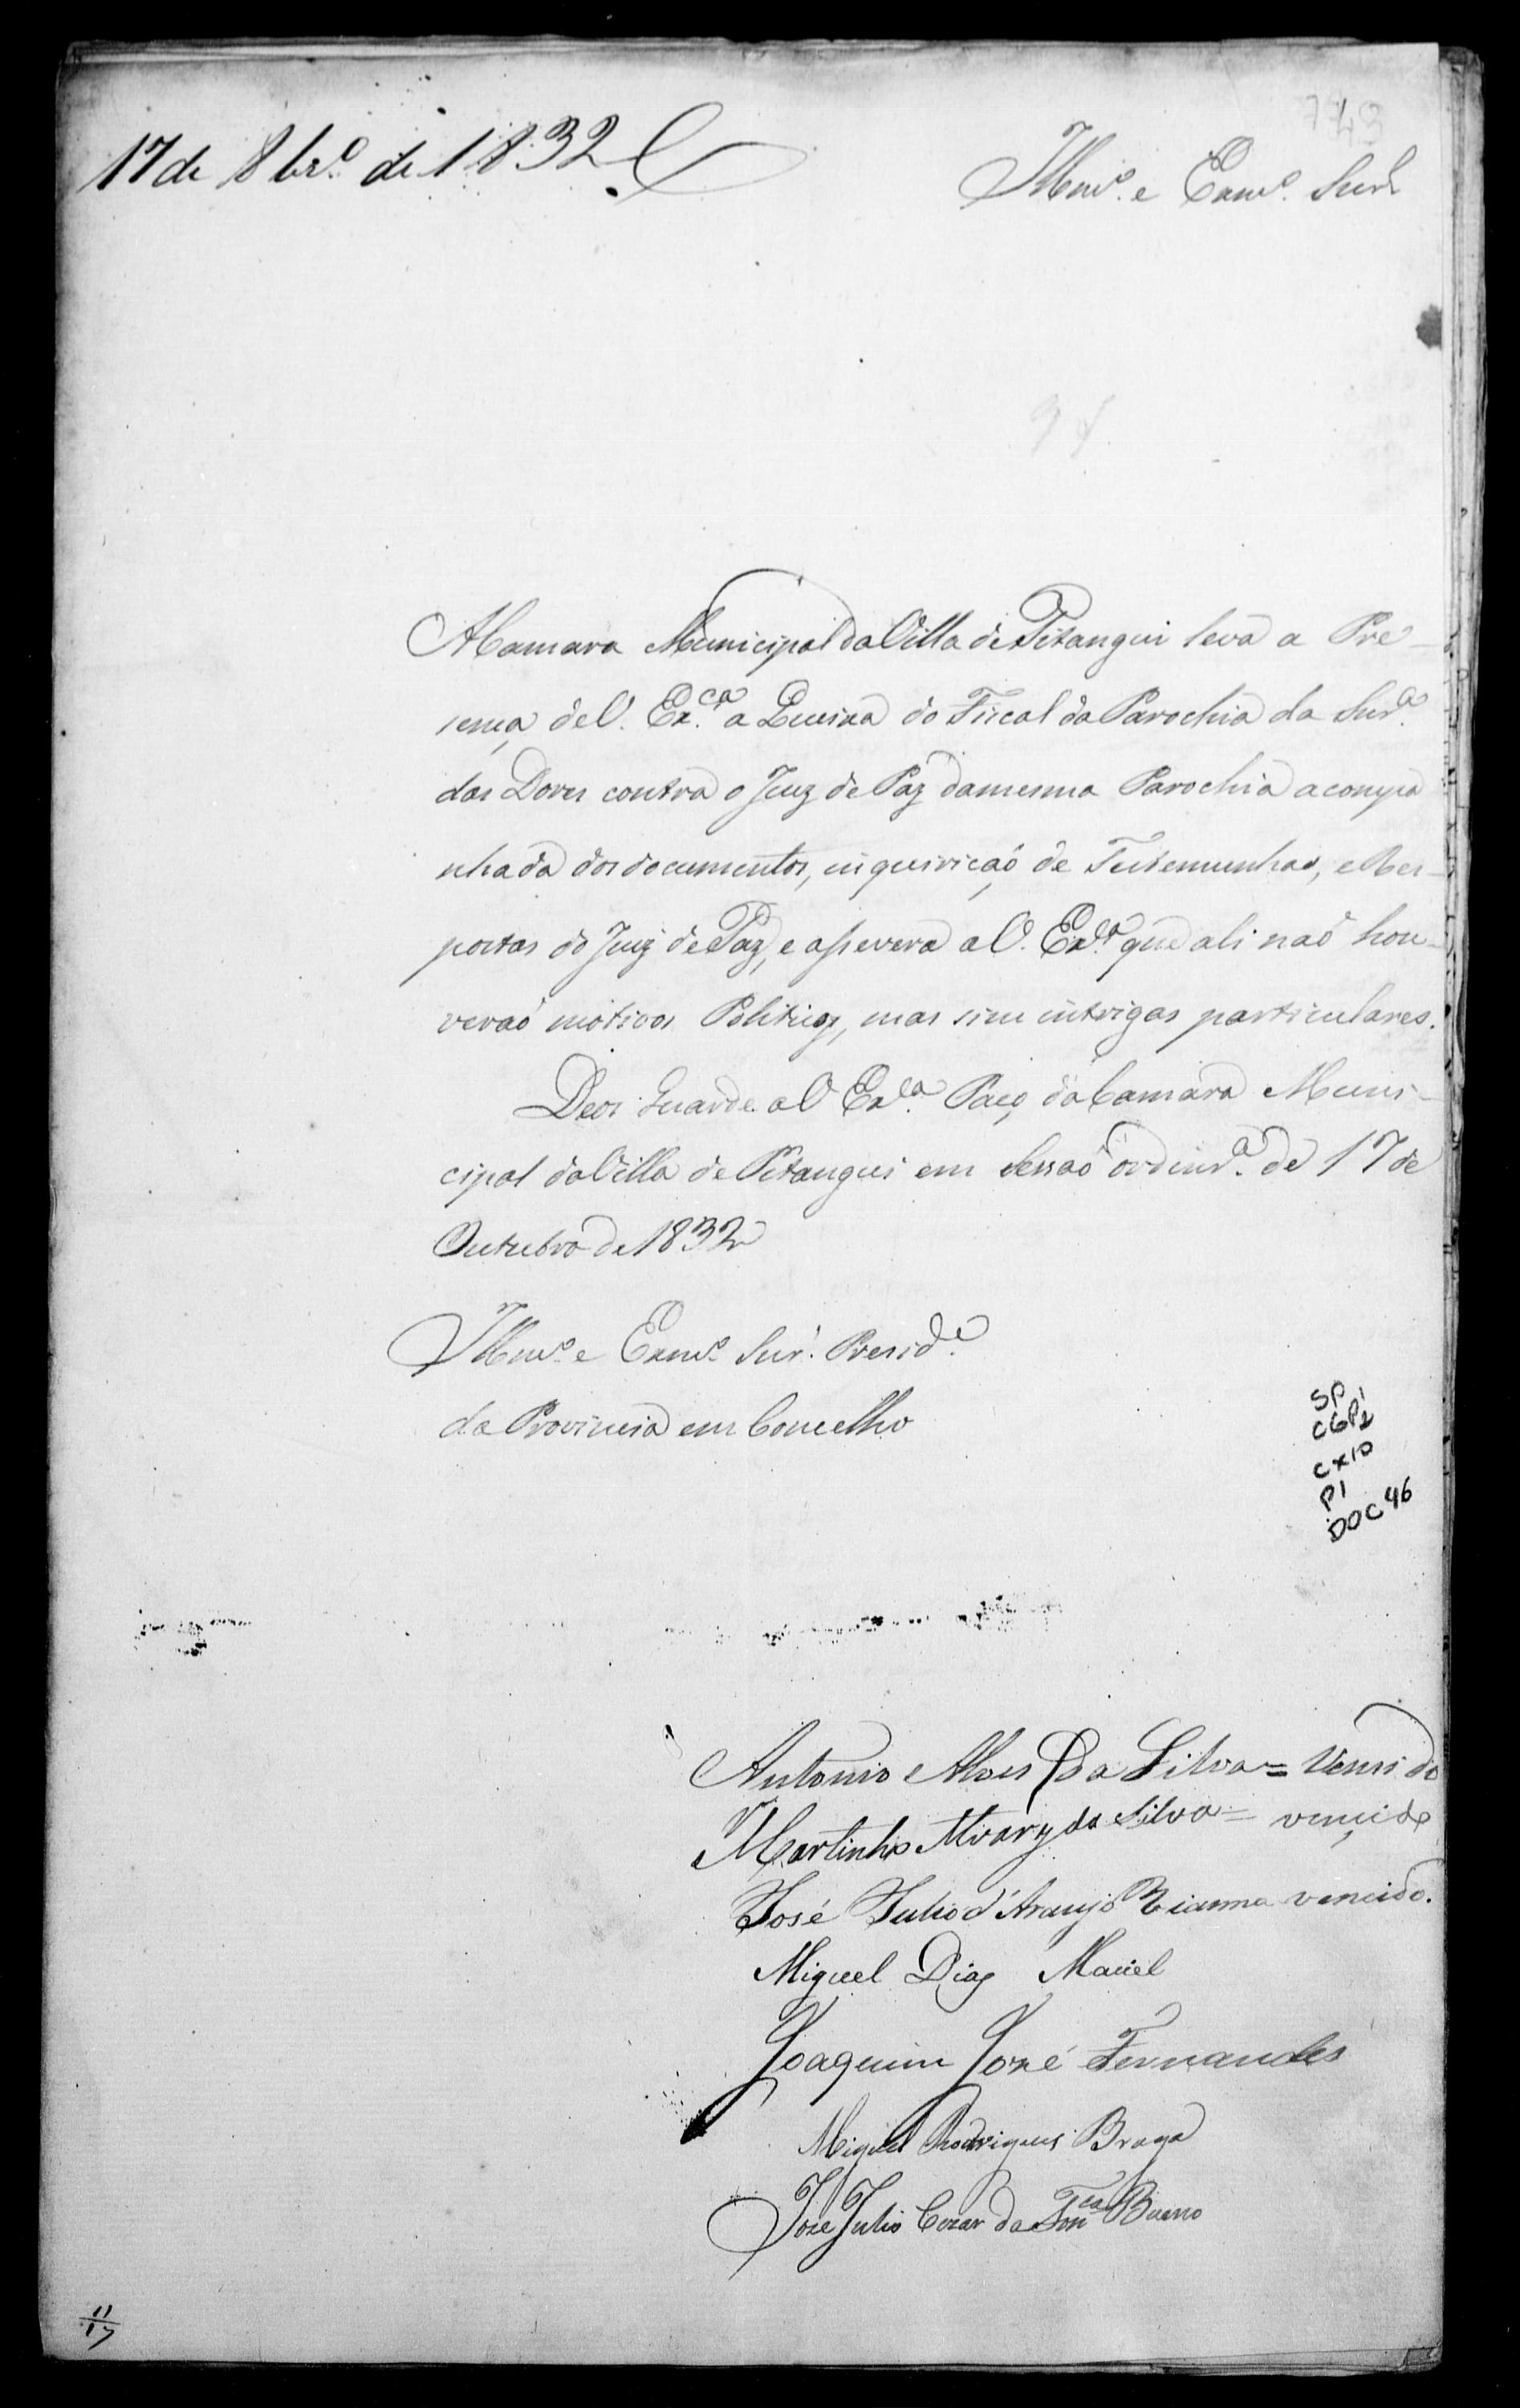 743
17 de 8br.º de 1832
Illm.º e Exm.º Snr.
A Camara Municipal da Villa de Pitangui leva a Pre-
sença de V. Ex.ca a Queixa do Fiscal da Parochia da Snr.ª
das Dores contra o Juiz de Paz da mesma Parochia acompa
nhada dos documentos, inquirição de Testemunhas, e Res-
postas do Juiz de Paz, e assevera a V. Ex.ca que ali naõ hou-
veraõ motivos Politicos, mas sim intrigas particulares.
Deos Guarde a V Ex.ca Paço da Camara Muni-
cipal da Villa de Pitangui em Sessaõ ordinr.ª de 17 de
Outubro de 1832
Illm.º e Exm.º Snr. Presid.e
da Provincia em Concelho
SP
CGP1
CX10
P1
DOC 46
Antonio Alves da Silva = Vensido
Martinho Alvarz da Silva = vencido
José Julio d'Araujo Vianna vencido.
Miguel Dias Maciel
Joaquim José Fernandes
Miguel Rodrigues Braga
Joze Julio Cezar da Fon.ca Bueno
11/17